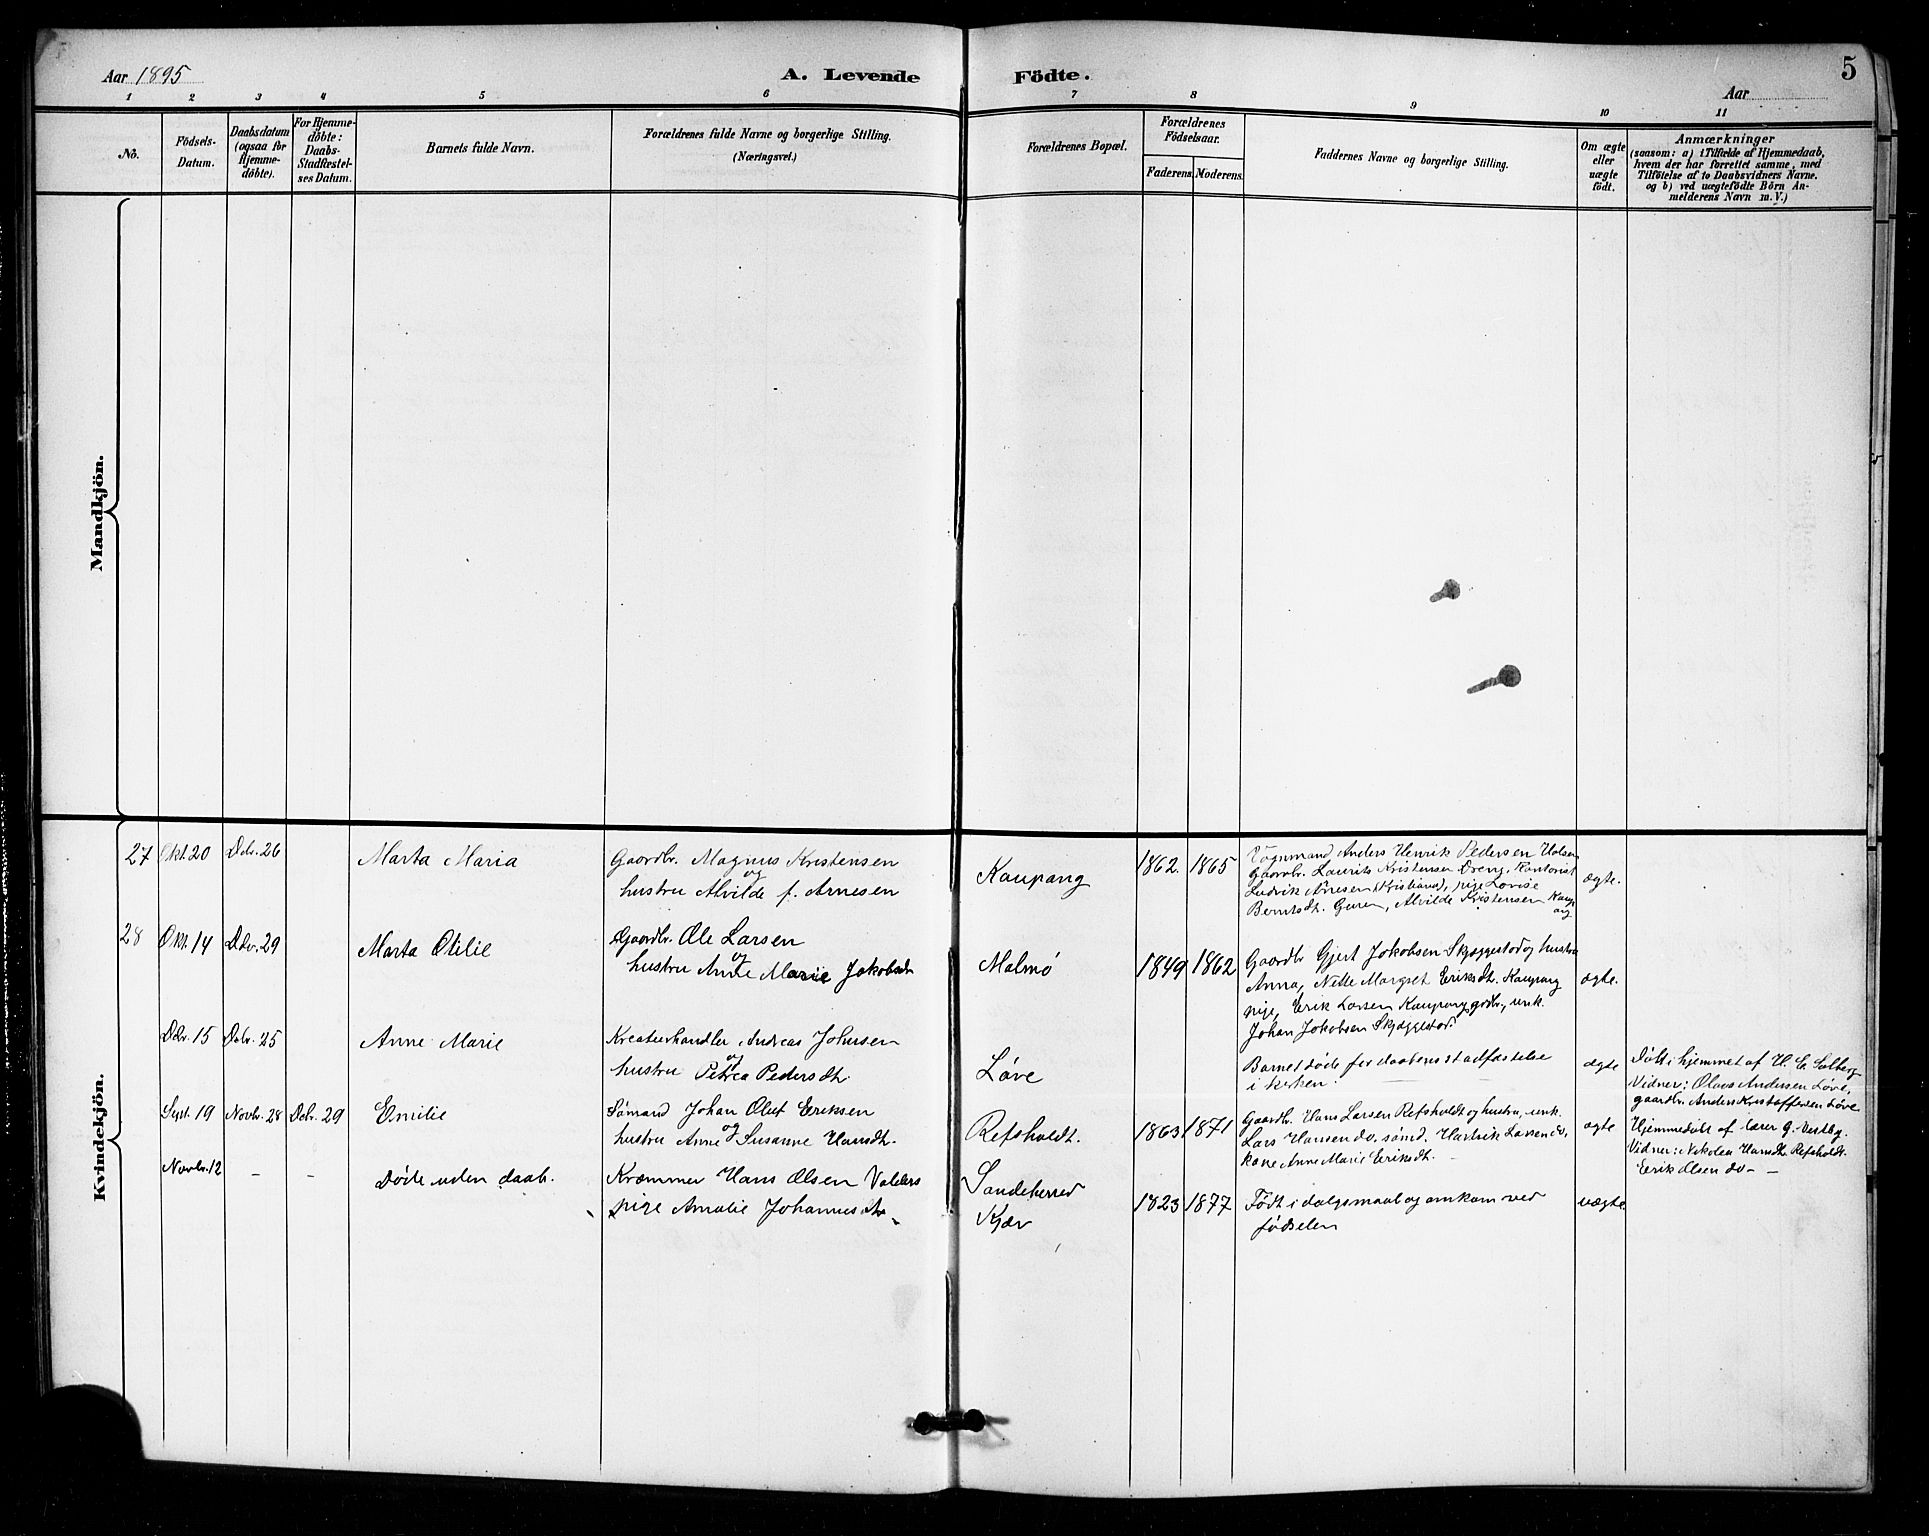 Aar 1895
A. Levende Födte.
5
Aar
1 2 3 4 5 6 7 8 9 10 11
No.
Födsels-Datum.
Daabsdatum (ogsaa for Hjemme-döbte).
For Hjemme-döbte: Daabs-Stadfæstel-ses Datum.
Barnets fulde Navn.
Forældrenes fulde Navne og borgerlige Stilling.
(Næringsvei.)
Forældrenes Bopæl.
Forældrenes Födselsaar.
Faderens. Moderens.
Faddernes Navne og borgerlige Stilling.
Om ægte eller uægte födt.
Anmærkninger
(saasom: a) i Tilfælde af Hjemmedaab,
hvem der har forrettet samme, med
Tilföielse af to Daabsvidners Navne.
og b) ved uægtefödte Börn An-
melderens Navn m.V.)
Mandkjön.
Kvindekjön.
27 Okt. 20 Dcbr. 26 Marta Maria
Gaardbr. Magnus Kristensen
og
hustru Alvilde f. Arnesen
Kaupang
1862. 1865
Anders Henrik Pedersen
Gaardbr. Laurits Kristensen Kontorist
Ludvik Arnesen (Kristiania), pige Lovise
Berntsdt. Guren, Alvilde Kristensen Kaup
ang
ægte.
28 Okt. 14 Dcbr. 29 Marta Otilie
Gaardbr. Ole Larsen
og
hustru Anne Marie Jakobsdt
Malmö
1849 1862
Gaardbr Gjert Jakobsen Skjæggestad og hustru
Anna, Nette Margret Eriksdt. Kaupang
pige, Erik Larsen Kaupang grdbr., unk.
Johan Jakobsen Skjæggestad.
ægte.
Dcbr. 15 Dcbr. 25 Anne Marie
Kreaturhandler Andreas Johnsen
og
hustru Petrea Pedersdt.
Löve
Barnet døde før daabens stadfæstelse
i kirken.
ægte
Døbt i hjemmet af H. E. Solberg
Vidner: Olaus Andersen Löve,
gaardbr. Anders Kristoffersen Löve
Sept. 19 Novbr. 28 Dcbr. 29 Emilie
Sømand Johan Oluf Eriksen
og
hustru Anne Susanne Hansdt.
Refsholdt.
1863 1871
Gaardbr. Hans Larsen Refsholdt og hustru, unk.
Lars Hansen do, sømd. Larsen do,
kone Anne Marie Eriksdt.
ægte
Hjemmedøbt af lærer G. Vestby.
Vidner: Nikolea Hansdt. Refsholdt
Erik Olsen do —
Novbr. 12 – – Døde uden daab.
Kræmmer Hans Olsen Valders
pige Amalie Johannesdtr
Sandeherred
Kjær
1823 1877
Født i dølgsmaal og omkom ved
fødselen
uægte.